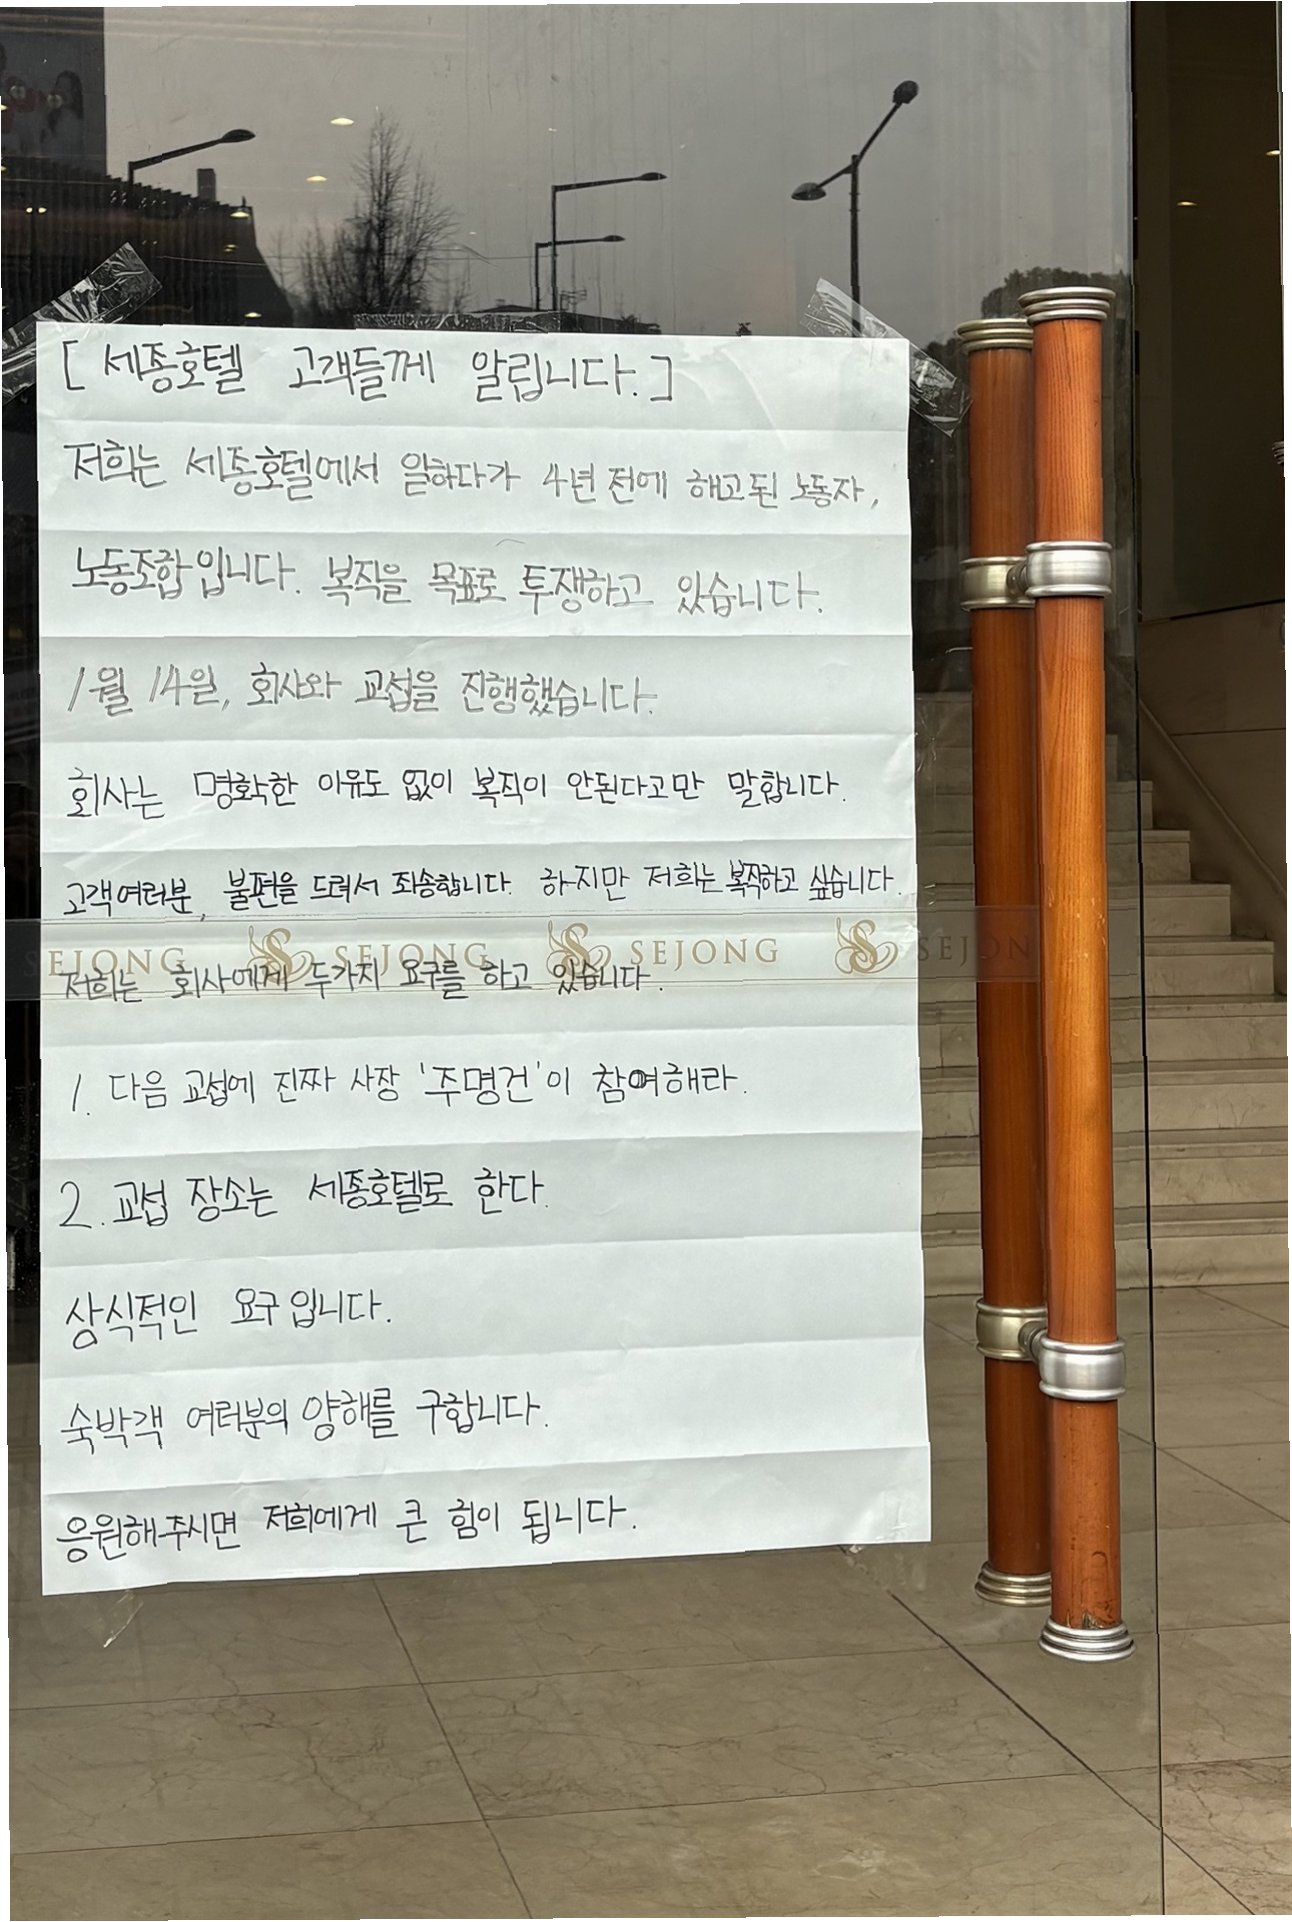 [세종호텔 고객들께 알립니다.]
저희는 세종호텔에서 일하다가 4년 전에 해고된 노동자,
노동조합입니다. 복직을 목표로 투쟁하고 있습니다.
1월 14일, 회사와 교섭을 진행했습니다.
회사는 명확한 이유도 없이 복직이 안된다고만 말합니다.
고객여러분, 불편을 드려서 죄송합니다. 하지만 저희는 복직하고 싶습니다.
SEJONG SEJONG SEJONG SEJON
저희는 회사에게 두가지 요구를 하고 있습니다.
1. 다음 교섭에 진짜 사장 '주명건'이 참여해라.
2. 교섭 장소는 세종호텔로 한다.
상식적인 요구입니다.
숙박객 여러분의 양해를 구합니다.
응원해주시면 저희에게 큰 힘이 됩니다.